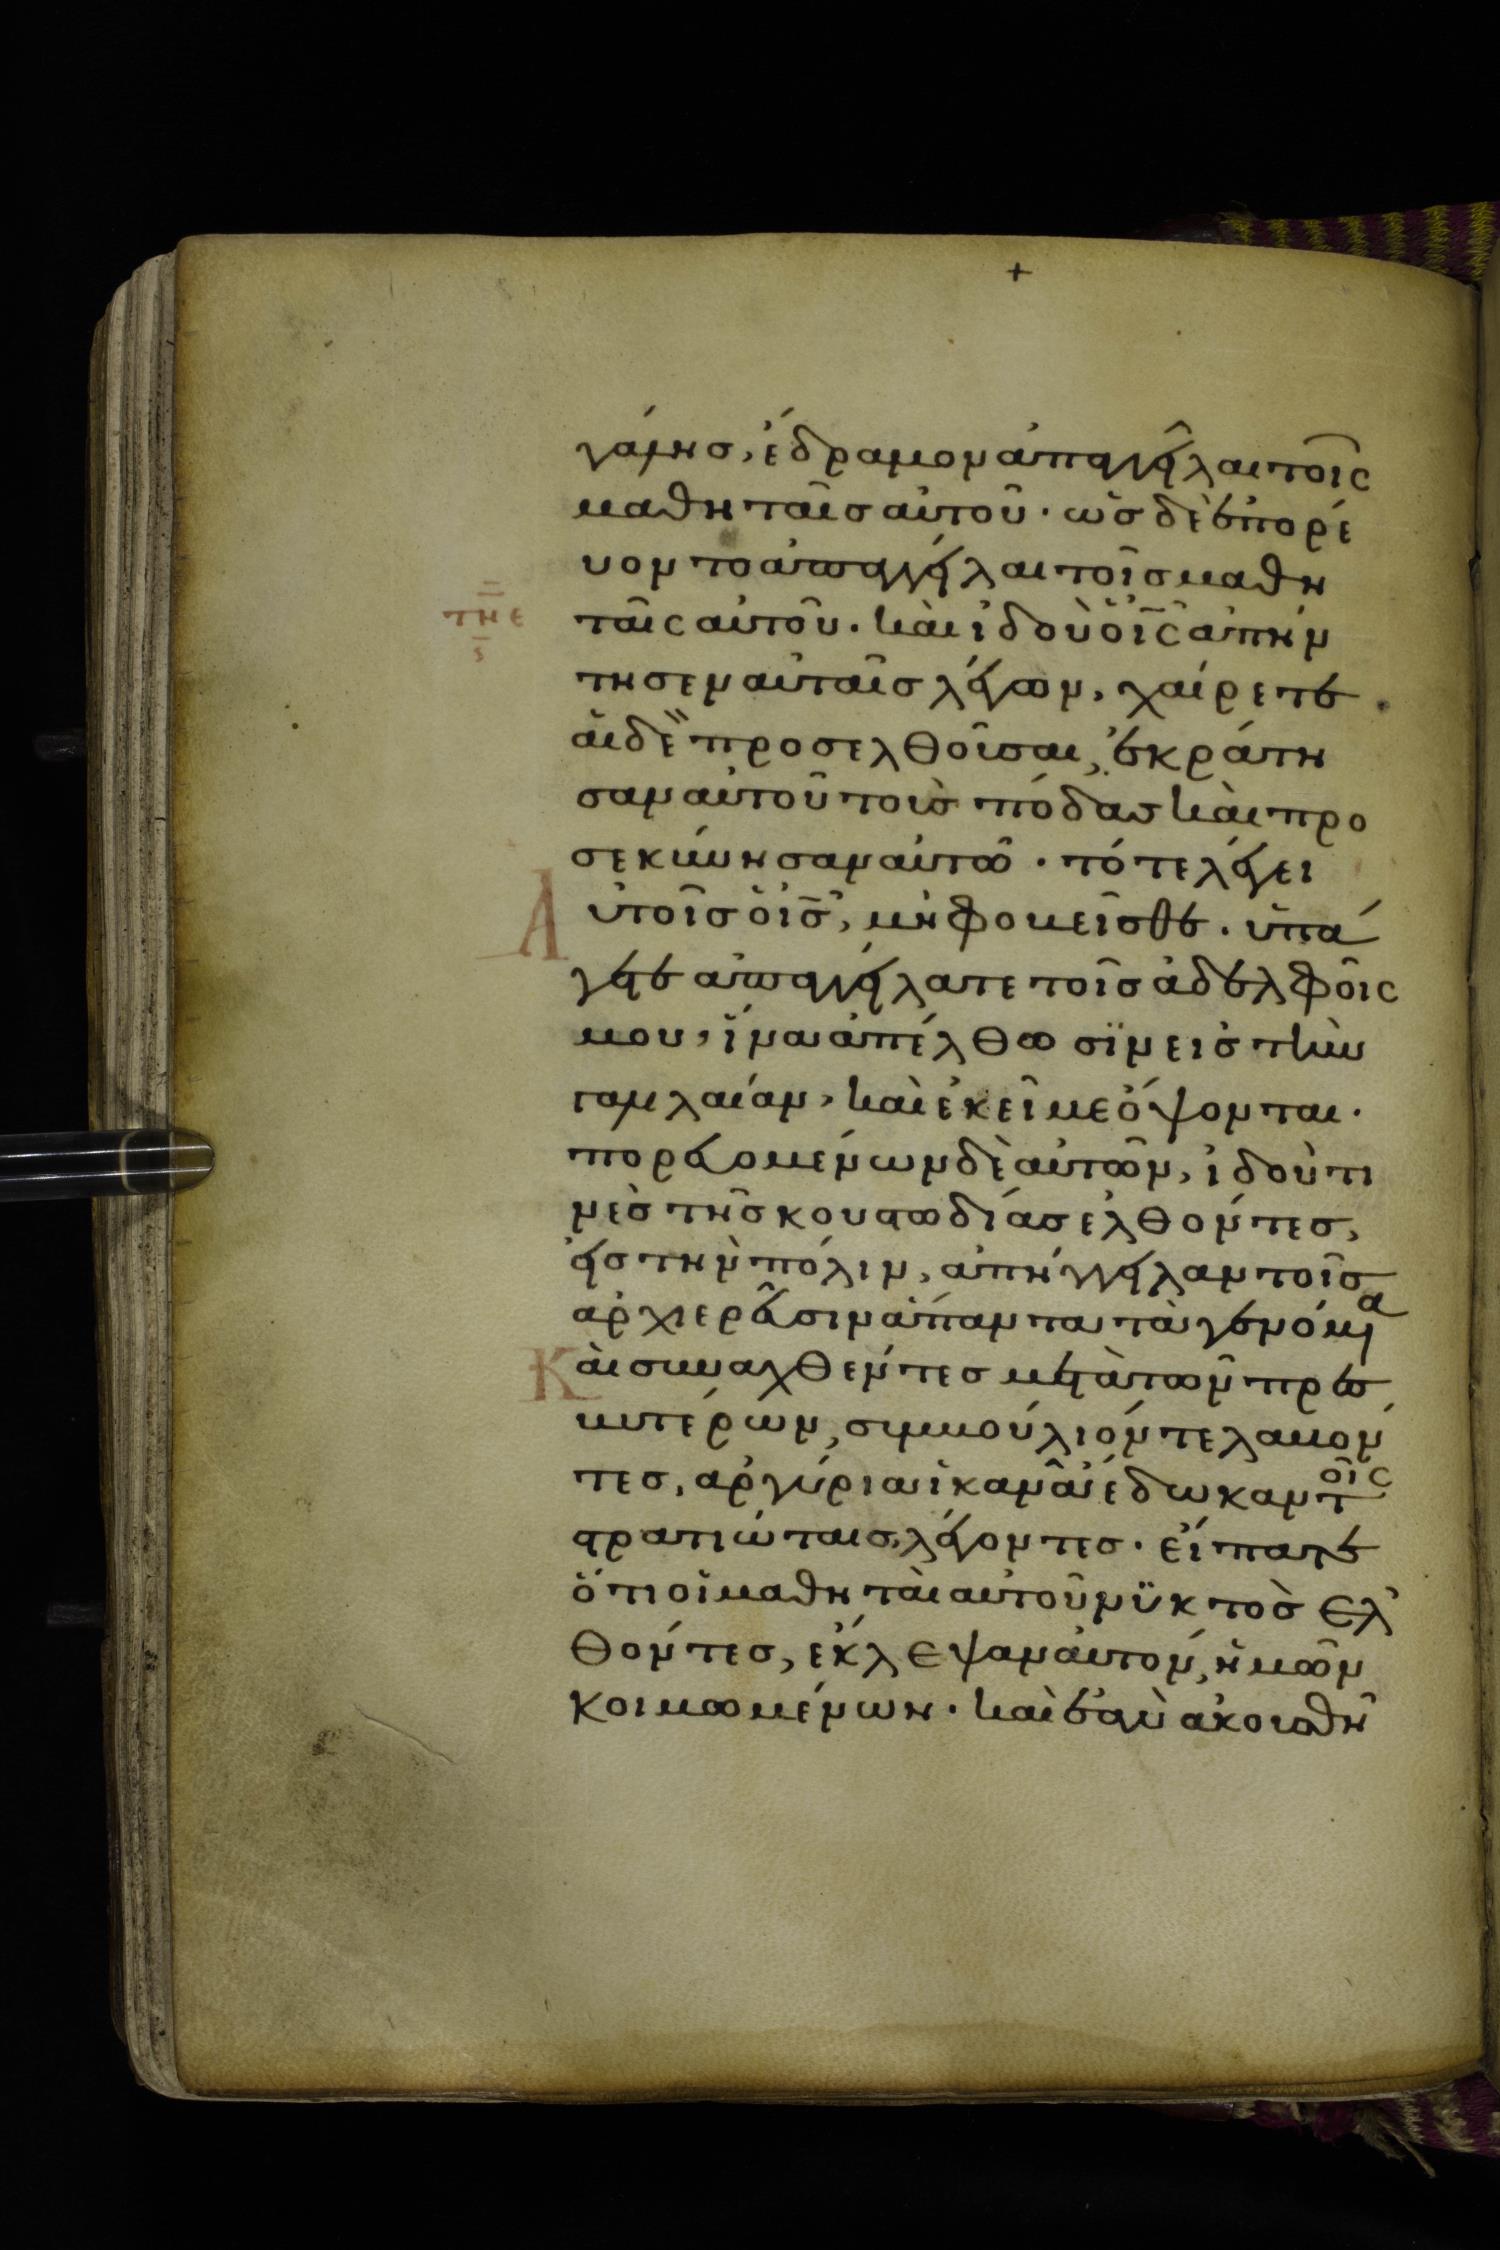 +
γάλησ, ἔδραμον ἀπαγγεῖλαι τοῖς
μαθηταῖσ αὐτοῦ · ὡσ δὲ ἐπορέ
υοντο ἀπαγγέλαι τοῖσ μαθη
τΝΕ ταῖς αὐτοῦ · καὶ ἰδοὺ ὁ ἰ̅ς̅ ἀπήν
τησεν αὐταῖσ λέγων, χαίρετε ·
αἱ δὲ προσελθοῦσαι, ἐκράτη
σαν αὐτοῦ τοὺσ πόδασ καὶ προ
σεκύνησαν αὐτῶ · τότε λέγει
Αὐτοῖσ ὁ ἰ̅σ̅, μὴ φοβεῖσθε · ὑπά
γετε ἀπαγγέλατε τοῖσ ἀδελφοῖς
μου, ἵνα ἀπέλθωσϊν εἰσ τὴν
γαλιλαίαν, καὶ ἐκεῖ με ὄψονται ·
πορευομένων δὲ αὐτῶν, ἰδού τι
νὲσ τῆσ κουστωδίασ ἐλθόντεσ,
εἰσ τὴν πόλιν, ἀπήγγειλαν τοῖσ
ἀρχιερεῦσιν ἅπαντα τὰ γενόμενα
Καὶ συναχθέντεσ μετὰ τῶν πρεσ
βυτέρων, συμβούλιόν τε λαβόν
τεσ, ἀργύρια ἱκανὰ ἔδωκαν τοῖς
στρατιώταισ, λέγοντεσ · εἴπατε
ὅτι οἱ μαθηταὶ αὐτοῦ νϋκτὸσ ἐλ
θόντεσ, ἔκλεψαν αὐτόν, ἡμῶν
κοιμωμένων · καὶ ἐὰν ἀκουσθῆ